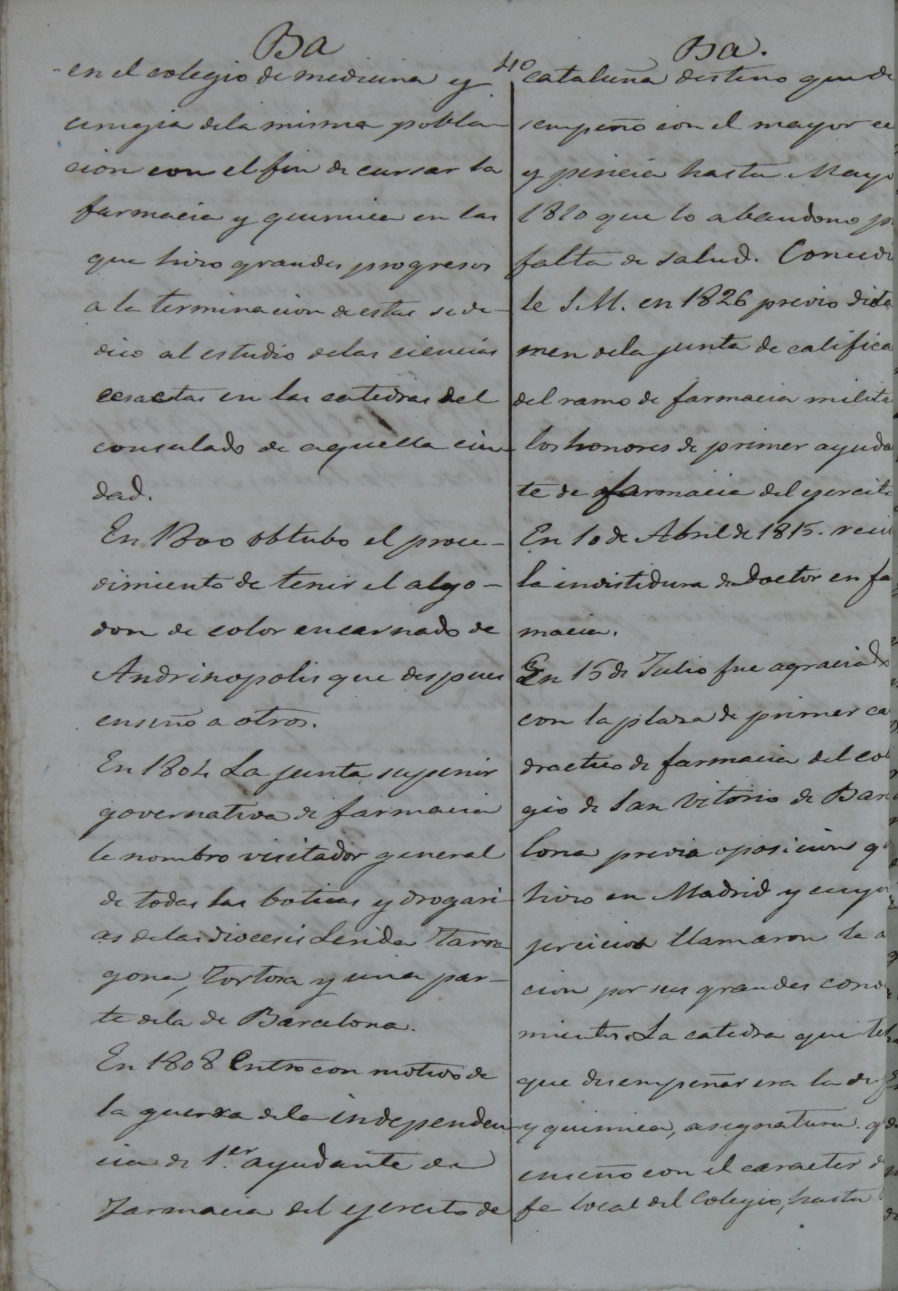 Ba
40
Ba.
en el colegio de medicina y
cirugia dela misma pobla-
cion con el fin de cursar la
farmacia y quimica en las
que hizo grandes progresos
a la terminacion de estas se de-
dico al estudio delas ciencias
ecsactas en las catedras del
consulado de aquella ciu-
dad.
En 1800 obtubo el proce-
dimiento de tenir el algo-
don de color encarnado de
Andrinopolis que despues
enseño a otros.
En 1804 La junta superior
governativa de farmacia
le nombro visitador general
de todas las boticas y drogeri-
as delas diocesis Lerida Tarra
gona, Tortosa y una par-
te dela de Barcelona.
En 1808 Entro con motivo de
la guerra dela independen-
cia de 1.er ayudante de
Farmacia del ejercito de
cataluña destino que de
sempeño con el mayor ce
y pericia hasta Mayo
1810 que lo abandono p
falta de salud. Concedio
le S.M. en 1826 previo dicta
men dela junta de califica
del ramo de farmacia milita
los honores de primer ayuda
te de farmacia del ejercito
En 10 de Abril de 1815. reci
la investidura de Doctor en fa
macia.
En 15 de Julio fue agraciado
con la plaza de primer ca
dratico de farmacia del co
gio de San Vitorio de Bar
lona previa oposicion q
hizo en Madrid y cuyo
jercicios llamaron la a
cion por sus grandes cono
mientos. La catedra que
que desempeñar era la de
y quimica, asignatura q
enseño con el caracter d
fe local del Colegio, hasta